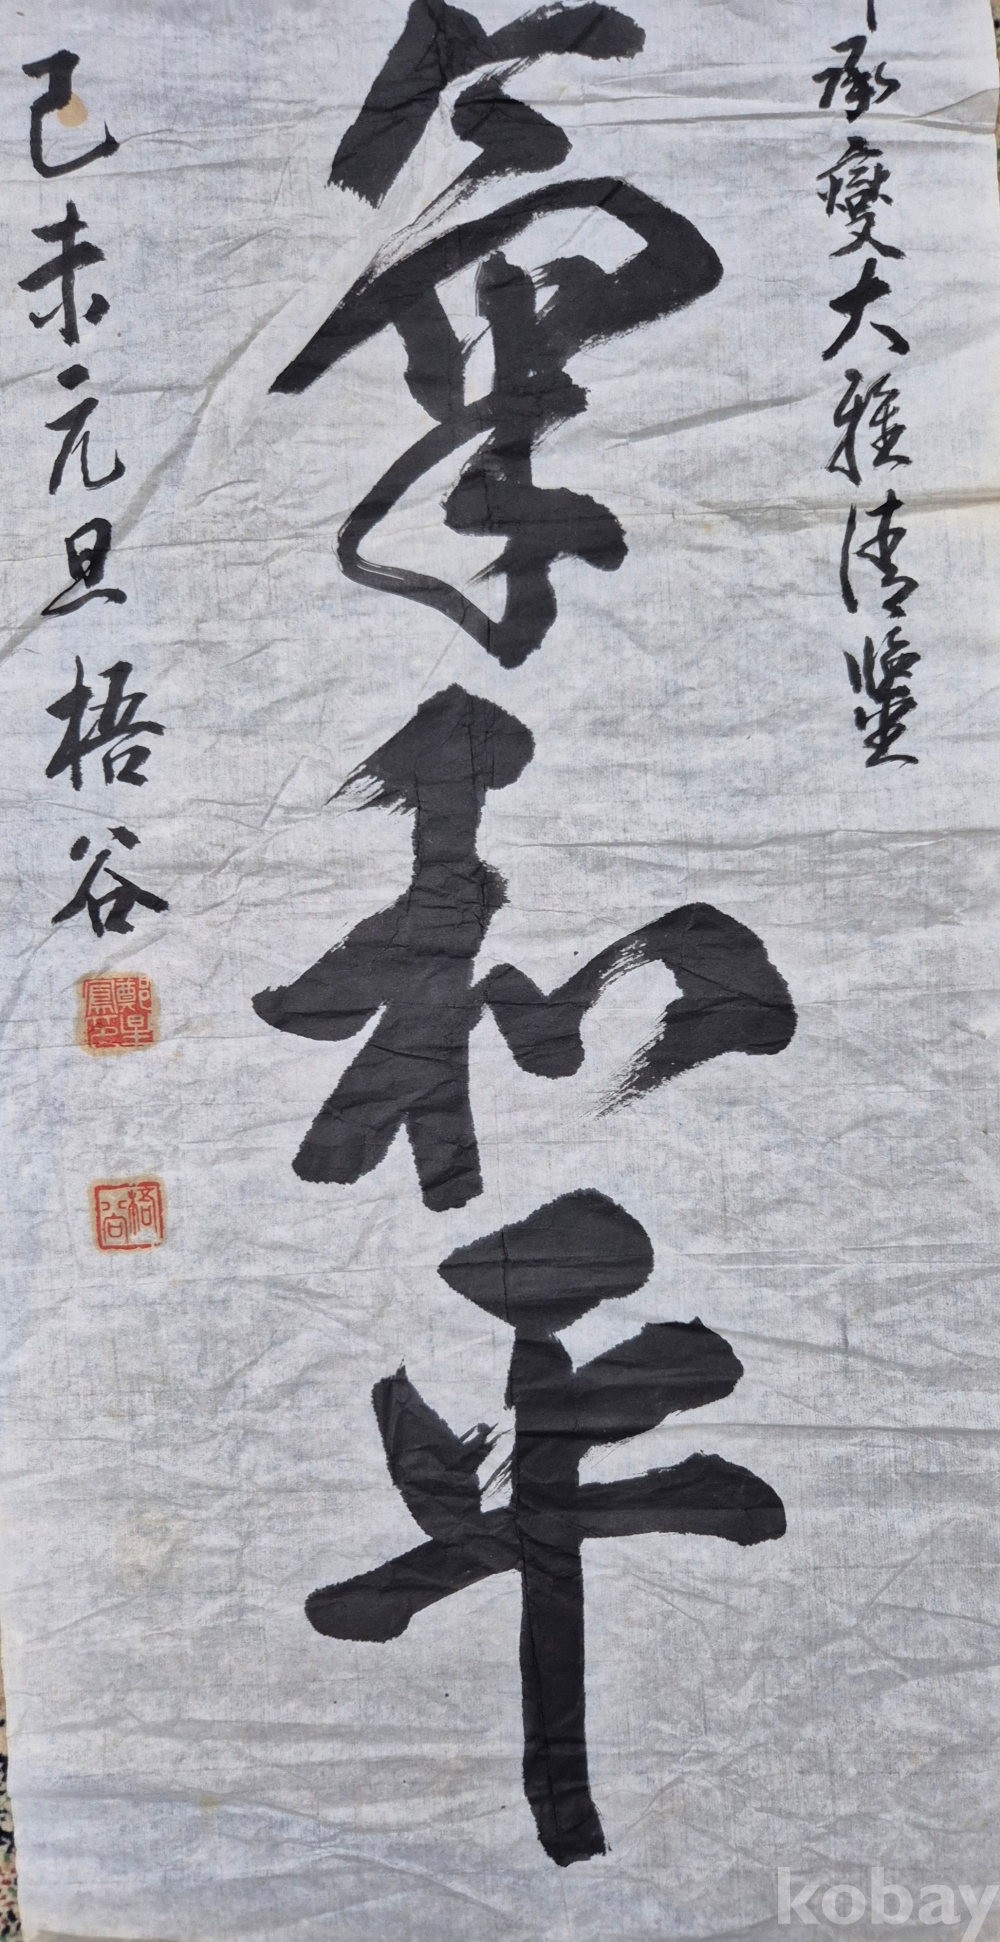 承燮大雅清鑒
氣和平
己未元旦 梧谷
梧谷